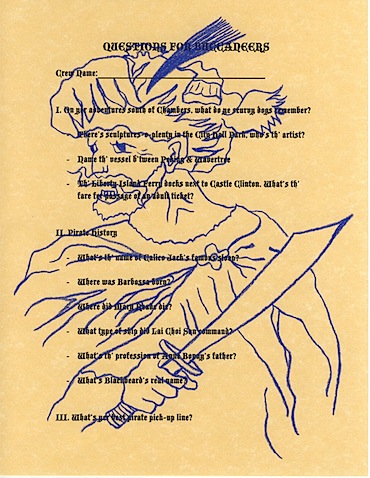 QUESTIONS FOR BUCCANEERS
Crew Name:
I. On yer adventures south of Chambers, what do ye scurvy dogs remember?
- There's sculptures-o-plenty in the City Hall Park, who's th' artist?
- Name th' vessel b'tween Pearl & Wavertree
- Th' Liberty Island Ferry docks next to Castle Clinton. What's th'
fare for passage of an adult ticket?
II. Pirate History
- What's th' name of Calico Jack's famous sloop?
- Where was Barbossa born?
- Where did Mary Read die?
- What type of ship did Lai Choi San command?
- What's th' profession of Anne Bonny's father?
- What's Blackbeard's real name?
III. What's yer best pirate pick-up line?